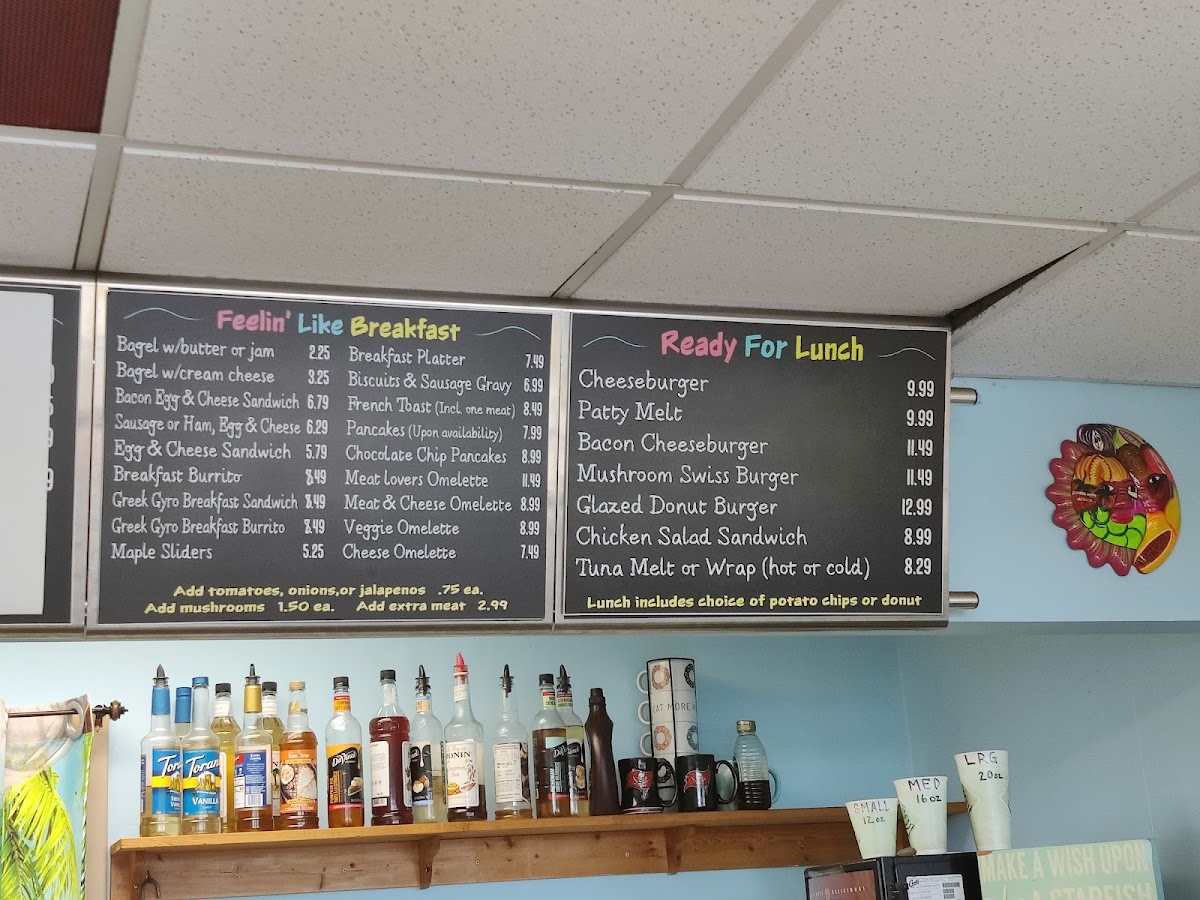 Feelin' Like Breakfast
Bagel w/butter or jam 2.25
Bagel w/cream cheese 3.25
Bacon Egg & Cheese Sandwich 6.79
Sausage or Ham, Egg & Cheese 6.29
Egg & Cheese Sandwich 5.79
Breakfast Burrito 8.49
Greek Gyro Breakfast Sandwich 8.49
Greek Gyro Breakfast Burrito 8.49
Maple Sliders 5.25
Breakfast Platter 7.49
Biscuits & Sausage Gravy 6.99
French Toast (Incl. one meat) 8.49
Pancakes (Upon availability) 7.99
Chocolate Chip Pancakes 8.99
Meat lovers Omelette 11.49
Meat & Cheese Omelette 8.99
Veggie Omelette 8.99
Cheese Omelette 7.49
Add tomatoes, onions,or jalapenos .75 ea.
Add mushrooms 1.50 ea. Add extra meat 2.99
Ready For Lunch
Cheeseburger 9.99
Patty Melt 9.99
Bacon Cheeseburger 11.49
Mushroom Swiss Burger 11.49
Glazed Donut Burger 12.99
Chicken Salad Sandwich 8.99
Tuna Melt or Wrap (hot or cold) 8.29
Lunch includes choice of potato chips or donut
Torani
VANILLA
DaVinci
MONIN
DaVinci
EAT MORE
SMALL
12oz
MED
16oz
LRG
20oz
MAKE A WISH UPON
A STARFISH